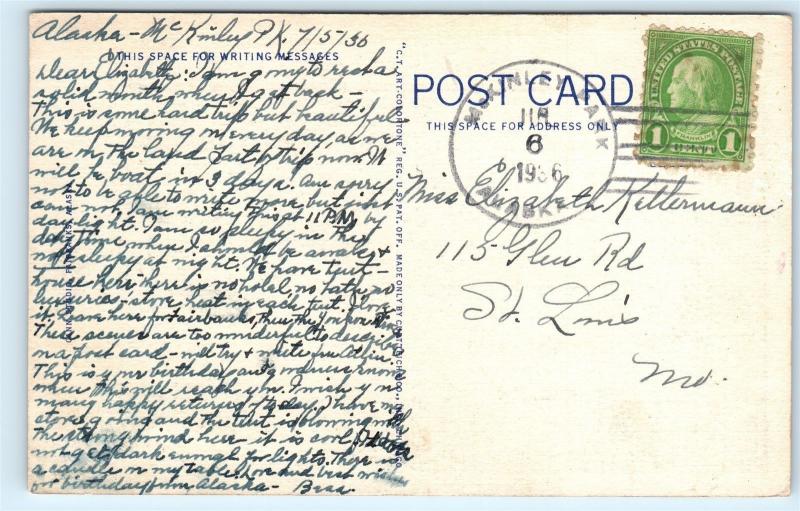 Alaska - McKinley PK. 7/5/36
THIS SPACE FOR WRITING MESSAGES
Dear Elizabeth: I am going to rest a
solid month when I get back -
This is some hard trip but beautiful.
We keep moving every day, as we
are on the land part of trip now. It
will be boat in 3 days. Am sorry
not to be able to write more but just
can not, I am writing this at 11 P.M. by
daylight. I am so sleepy in the
day time when I should be awake &
not sleepy at night. We have tent-
house here - here is no hotel, no baths or
luxuries - stove heat in each tent. I love
it. Leave here for Fairbanks, then the Yukon
These scenes are too wonderful to describe
on a post card - will try & write from Atlin.
This is your birthday card as I never know
when this will reach you. I wish you
many happy returns of today. I have my
stove going and the tent is blowing with
the strong wind here it is cool. It does
not get dark enough for lights. There is
a candle on my table. Love and best wishes
for birthday from Alaska - Bess.
"C.T. ART-COLORTONE" REG. U.S. PAT. OFF. MADE ONLY BY CURT TEICH & CO., INC., CHICAGO
POST CARD
THIS SPACE FOR ADDRESS ONLY
McKINLEY PARK
JUL
6
1936
ALASKA
UNITED STATES POSTAGE
FRANKLIN
1 CENT 1
Miss Elizabeth Kellermann
115 Glen Rd
St. Louis
Mo.